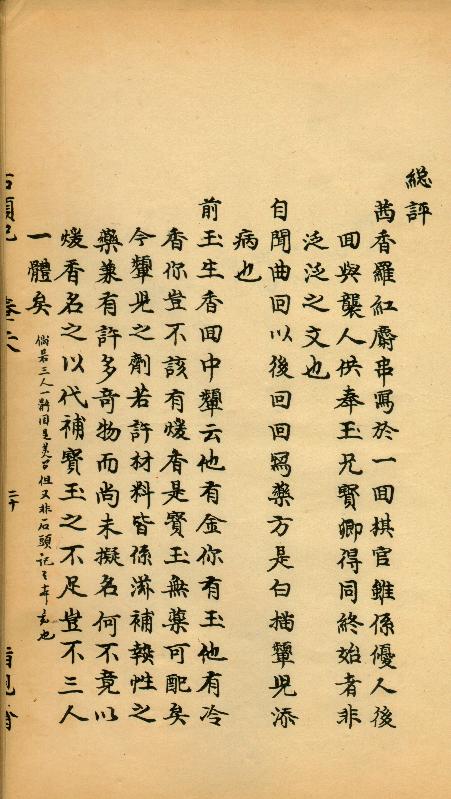 總評
茜香羅紅麝串寫於一回棋官雖係優人後
回與襲人供奉玉兄寶卿得同終始者非
泛泛之文也
自聞曲回以後回回寫藥方是白描顰兒添
病也
前玉生香回中顰云他有金你有玉他有冷
香你豈不該有煖香是寶玉無藥可配矣
今顰兒之劑若許材料皆係滋補熱性之
藥兼有許多奇物而尚未擬名何不竟以
煖香名之以代補寶玉之不足豈不三人
一體矣
倘若三人一體固是美事但又非石頭記之本意也